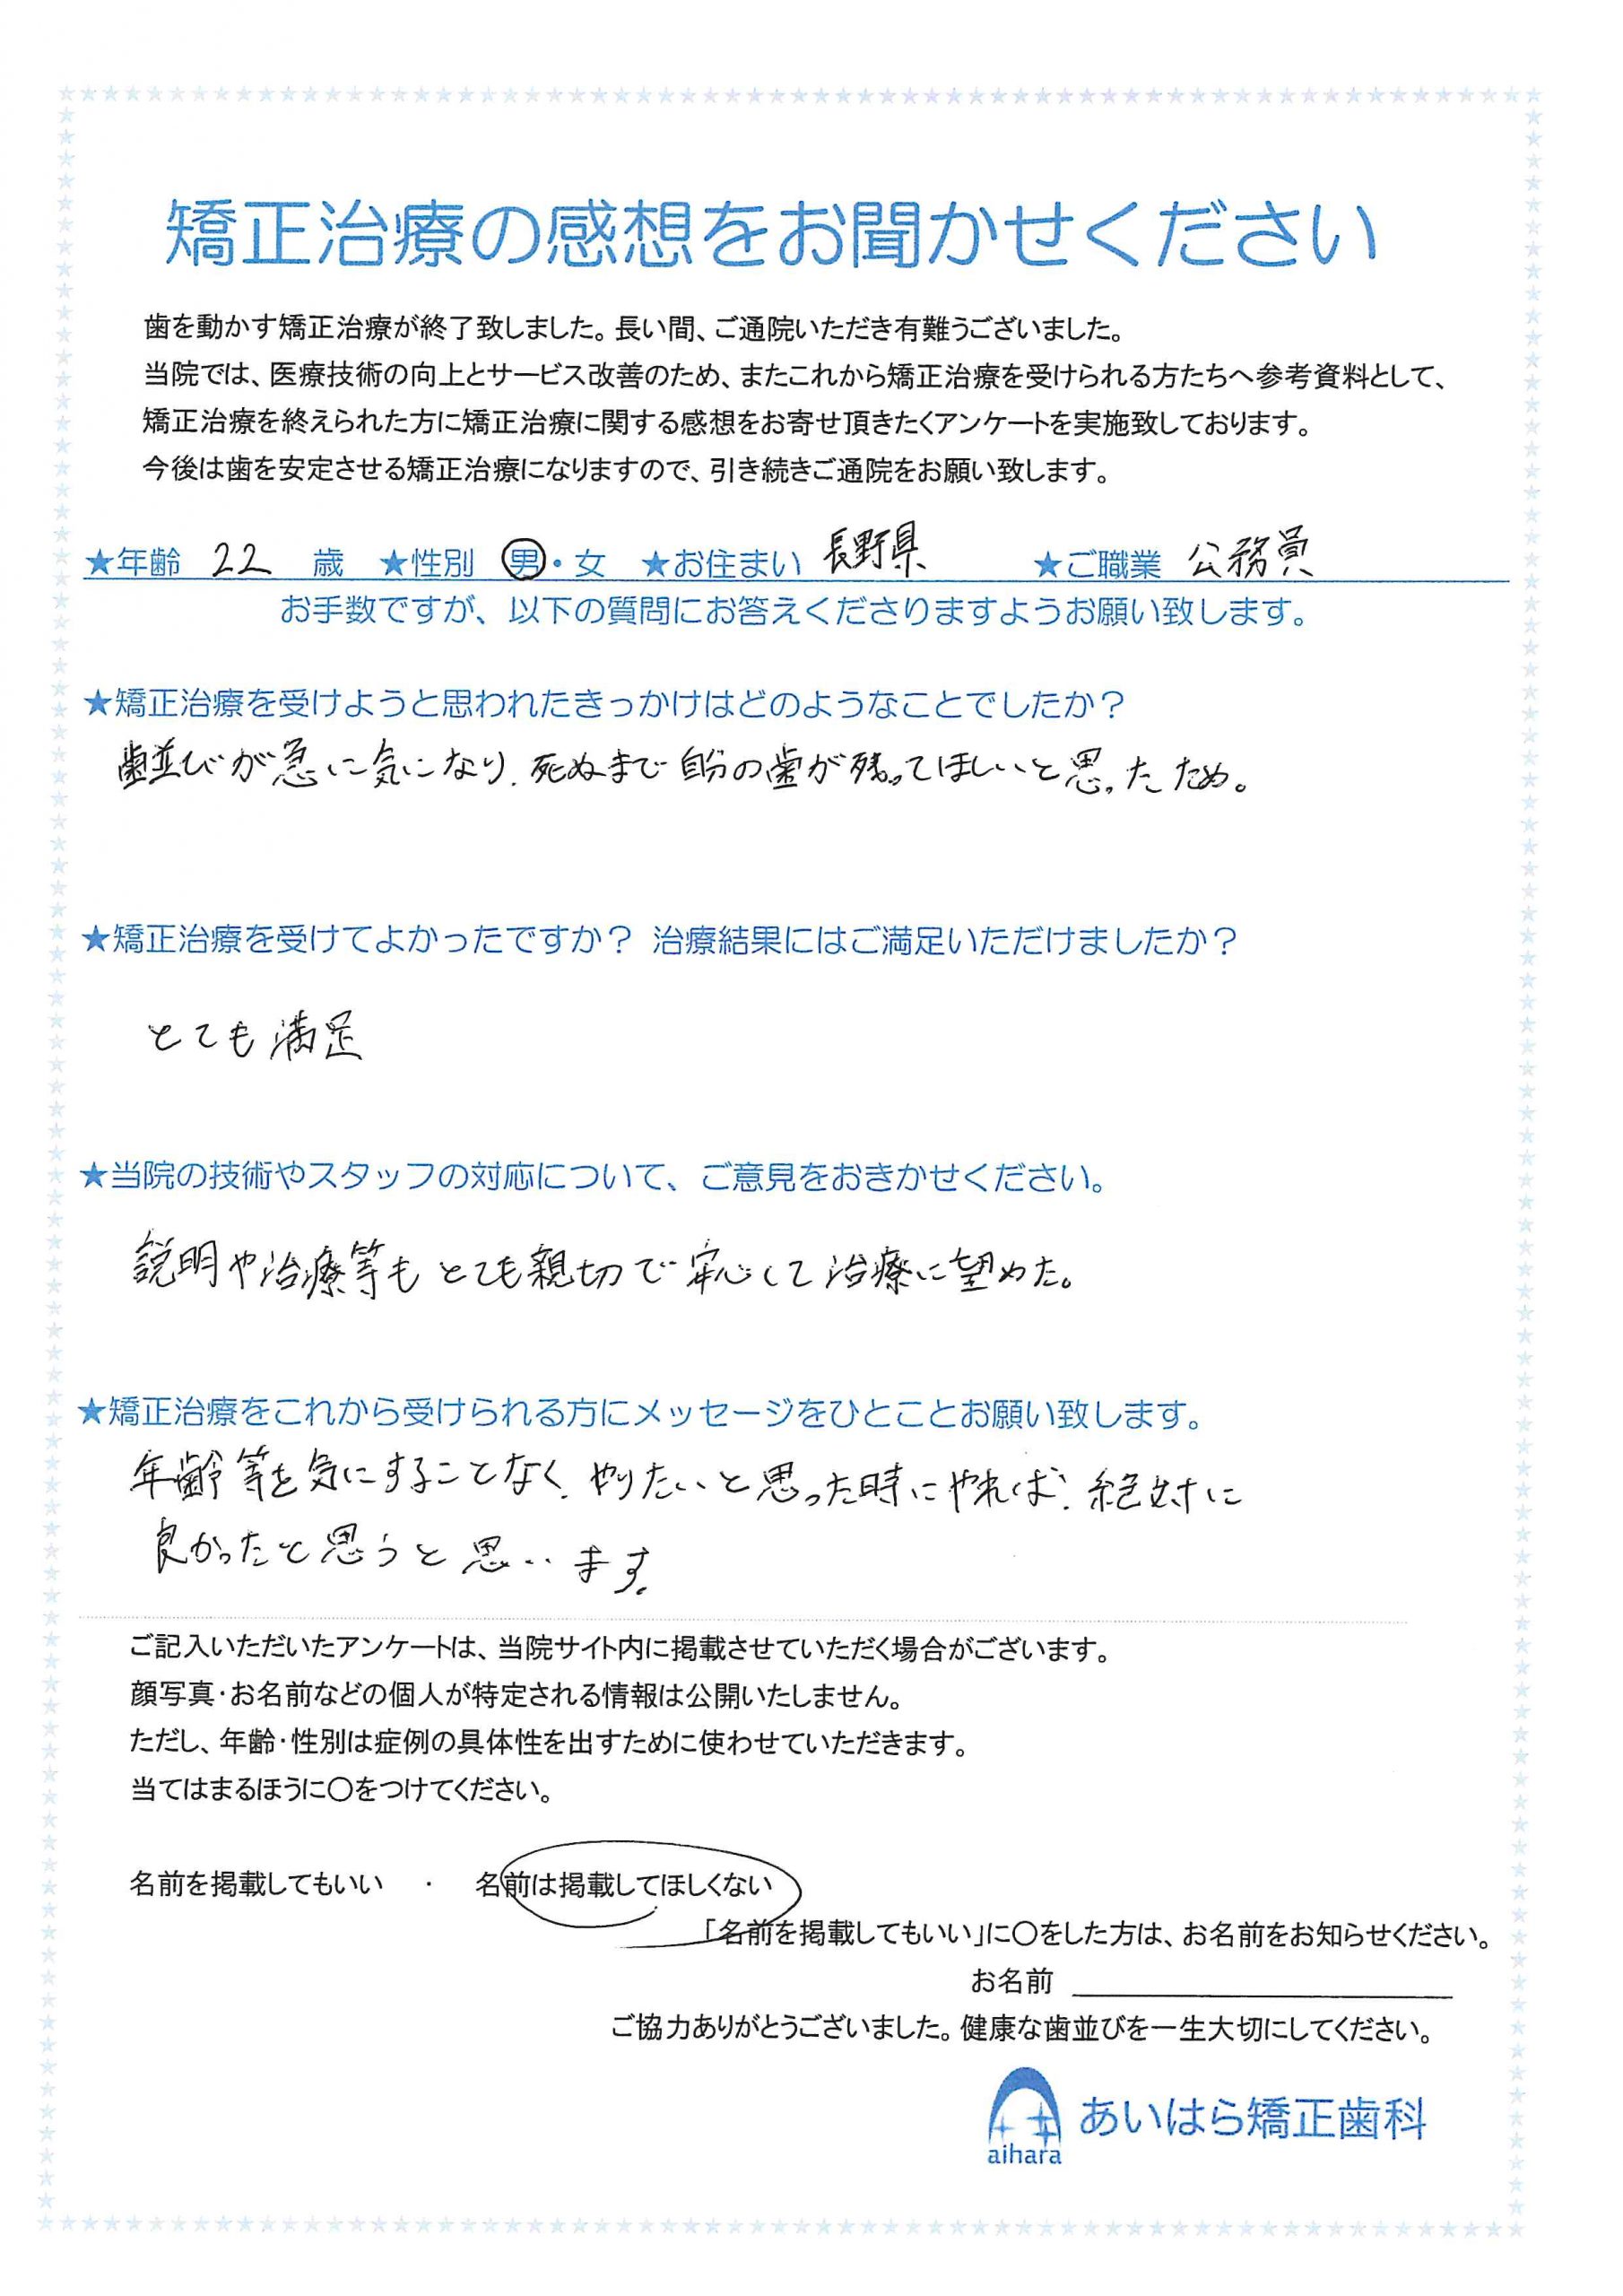 矯正治療の感想をお聞かせください
歯を動かす矯正治療が終了致しました。長い間、ご通院いただき有難うございました。
当院では、医療技術の向上とサービス改善のため、またこれから矯正治療を受けられる方たちへ参考資料として、
矯正治療を終えられた方に矯正治療に関する感想をお寄せ頂きたくアンケートを実施致しております。
今後は歯を安定させる矯正治療になりますので、引き続きご通院をお願い致します。
★年齢 22 歳 ★性別 男・女 ★お住まい 長野県 ★ご職業 公務員
お手数ですが、以下の質問にお答えくださりますようお願い致します。
★矯正治療を受けようと思われたきっかけはどのようなことでしたか？
歯並びが急に気になり、死ぬまで自分の歯が残ってほしいと思ったため。
★矯正治療を受けてよかったですか？ 治療結果にはご満足いただけましたか？
とても満足
★当院の技術やスタッフの対応について、ご意見をおきかせください。
説明や治療等もとても親切で安心して治療に望めた。
★矯正治療をこれから受けられる方にメッセージをひとことお願い致します。
年齢等を気にすることなく、やりたいと思った時にやれば、絶対に
良かったと思うと思います。
ご記入いただいたアンケートは、当院サイト内に掲載させていただく場合がございます。
顔写真・お名前などの個人が特定される情報は公開いたしません。
ただし、年齢・性別は症例の具体性を出すために使わせていただきます。
当てはまるほうに〇をつけてください。
名前を掲載してもいい ・ 名前は掲載してほしくない
「名前を掲載してもいい」に〇をした方は、お名前をお知らせください。
お名前
ご協力ありがとうございました。健康な歯並びを一生大切にしてください。
aihara あいはら矯正歯科